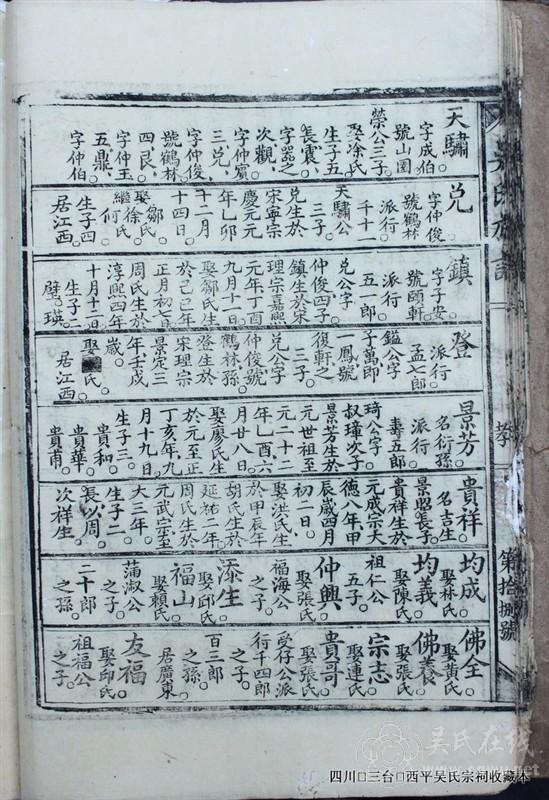 天驌
字成伯
號山園
榮公三子
娶涂氏
生子五
長震
字器之
次觀
字仲賓
三兌
字仲俊
號鶴林
四艮
字仲玉
五鼎
字仲伯
兌
字仲俊
號鶴林
派行
千十一
天驌公
三子
兌生於
宋寧宗
慶元元
年乙卯
十二月
十四日
娶鄒氏
繼徐氏何氏
生子四
居江西
鎮
字子安
號頤軒
派行
五一郎
兌公字
仲俊四子
鎮生於宋
理宗嘉熙
元年丁酉
九月十一日
娶鄒氏生
於己巳年
正月初七日
周氏生於
淳熙四年
十月十二日
生子二
璧 瑛
登
派行
孟七郎
鎰公字
子萬郎
一鳳號
復軒之
三子
兌公字
仲俊號
鶴林孫
登生於
宋理宗
景定三
年壬戌
歲
娶 氏
居江西
景芳
名衍孫
派行
壽五郎
琦公字
叔璋次子
景芳生於
元世祖至
元二十二
年乙酉六
月廿八日
娶廖氏生
於元至正
丁亥年九
月十九日
生子三
貴和
貴華
貴甫
貴祥
名吉生
景昭長子
貴祥生於
元成宗大
德八年甲
辰歲四月
初二日
娶洪氏生
於甲辰年
胡氏生於
延祐二年
周氏生於
元武宗至
大三年
生子二
長以周
次祥生
均成
娶林氏
均義
娶陳氏
祖仁公
五子
仲興
娶張氏
福海公
之子
添生
娶邱氏
福山
娶賴氏
蒲淑公
之子
二十郎
之孫
佛全
娶黃氏
佛養
娶張氏
宗志
娶連氏
貴哥
娶張氏
受仔公派
行千四郎
之子
百三郎
之孫
居廣東
友福
娶邱氏
祖福公
之子
吳氏族譜
第拾捌號
吴氏在线
四川□三台□西平吴氏宗祠收藏本